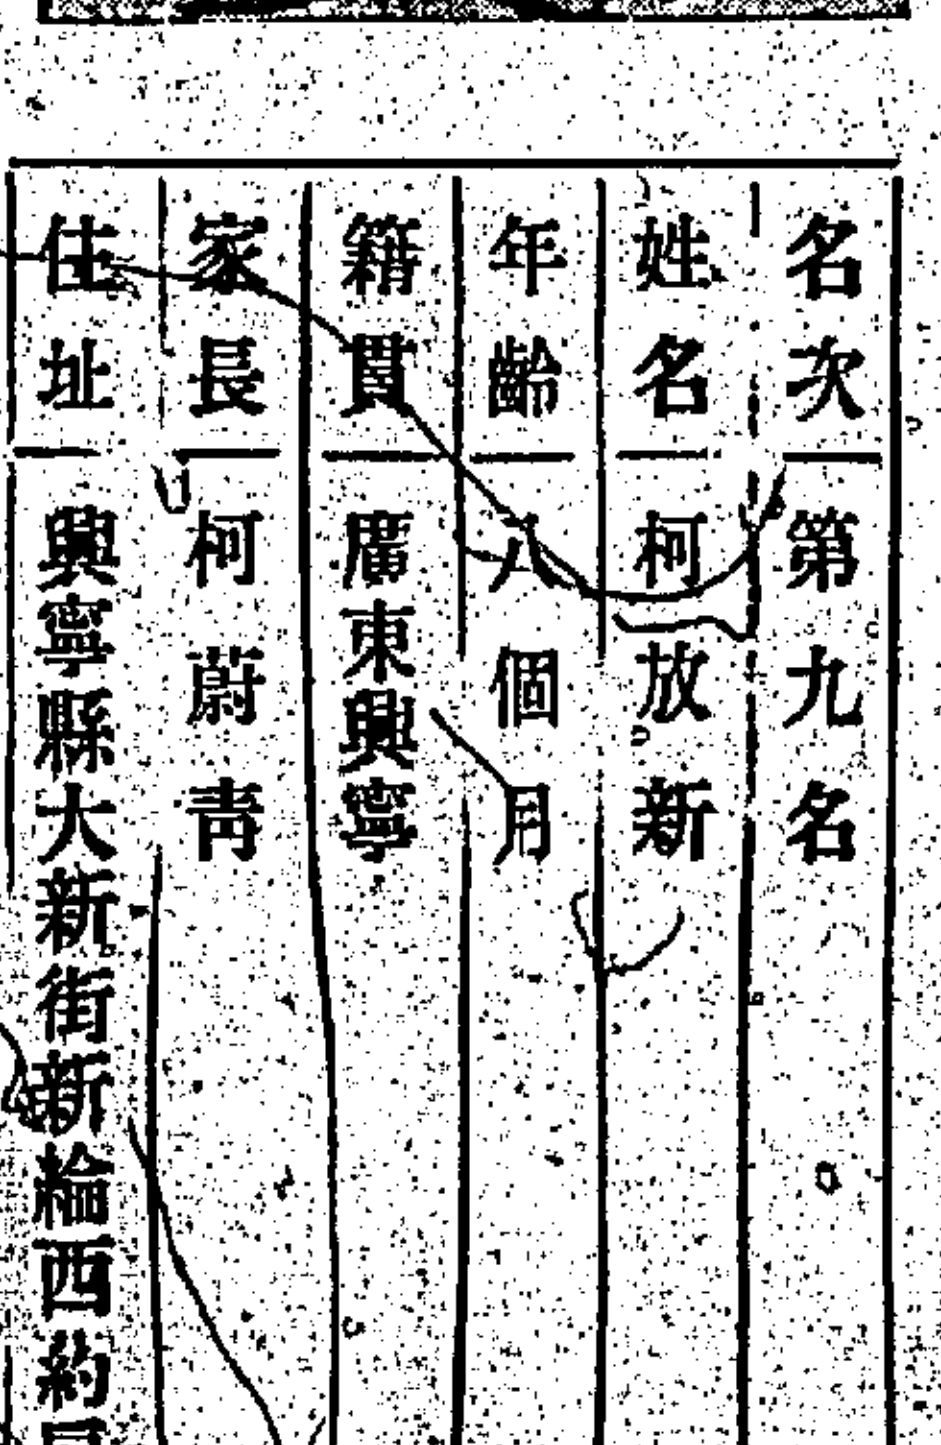 名次 第九名
姓名 柯放新
年齡 八個月
籍貫 廣東興寧
家長 柯蔚青
住址 興寧縣大新街新綸西約